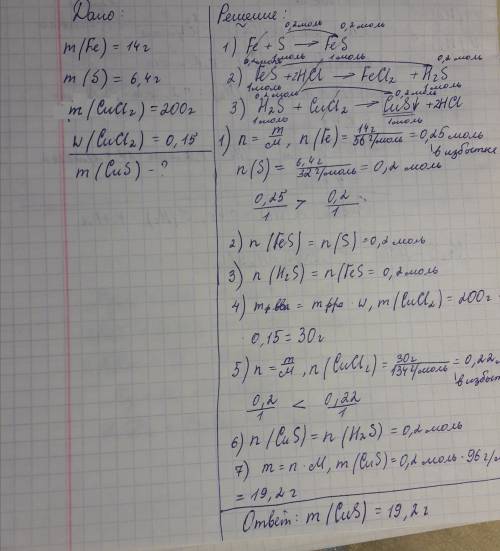 Дано:
m(Fe) = 14г
m(S) = 6,4г
m(CuCl₂) = 200г
w(CuCl₂) = 0,15
m(CuS) - ?
Решение:
0,2моль 0,2моль
1) Fe + S → FeS
0,2моль 1моль 1моль 0,2моль
2) FeS + 2HCl → FeCl₂ + H₂S
0,2моль 0,2моль
3) H₂S + CuCl₂ → CuS↓ + 2HCl
1моль 1моль
1) n = m/M, n(Fe) = 14г/56г/моль = 0,25моль
в избытке
n(S) = 6,4г/32г/моль = 0,2 моль
0,25/1 > 0,2/1
2) n(FeS) = n(S) = 0,2моль
3) n(H₂S) = n(FeS = 0,2моль
4) mр.ва = mр-ра · w, m(CuCl₂) = 200г ·
· 0,15 = 30г
5) n = m/M, n(CuCl₂) = 30г/134г/моль = 0,22
в избы
0,2/1 < 0,22/1
6) n(CuS) = n(H₂S) = 0,2моль
7) m = n · M, m(CuS) = 0,2моль · 96г/м
= 19,2г
Ответ: m(CuS) = 19,2г